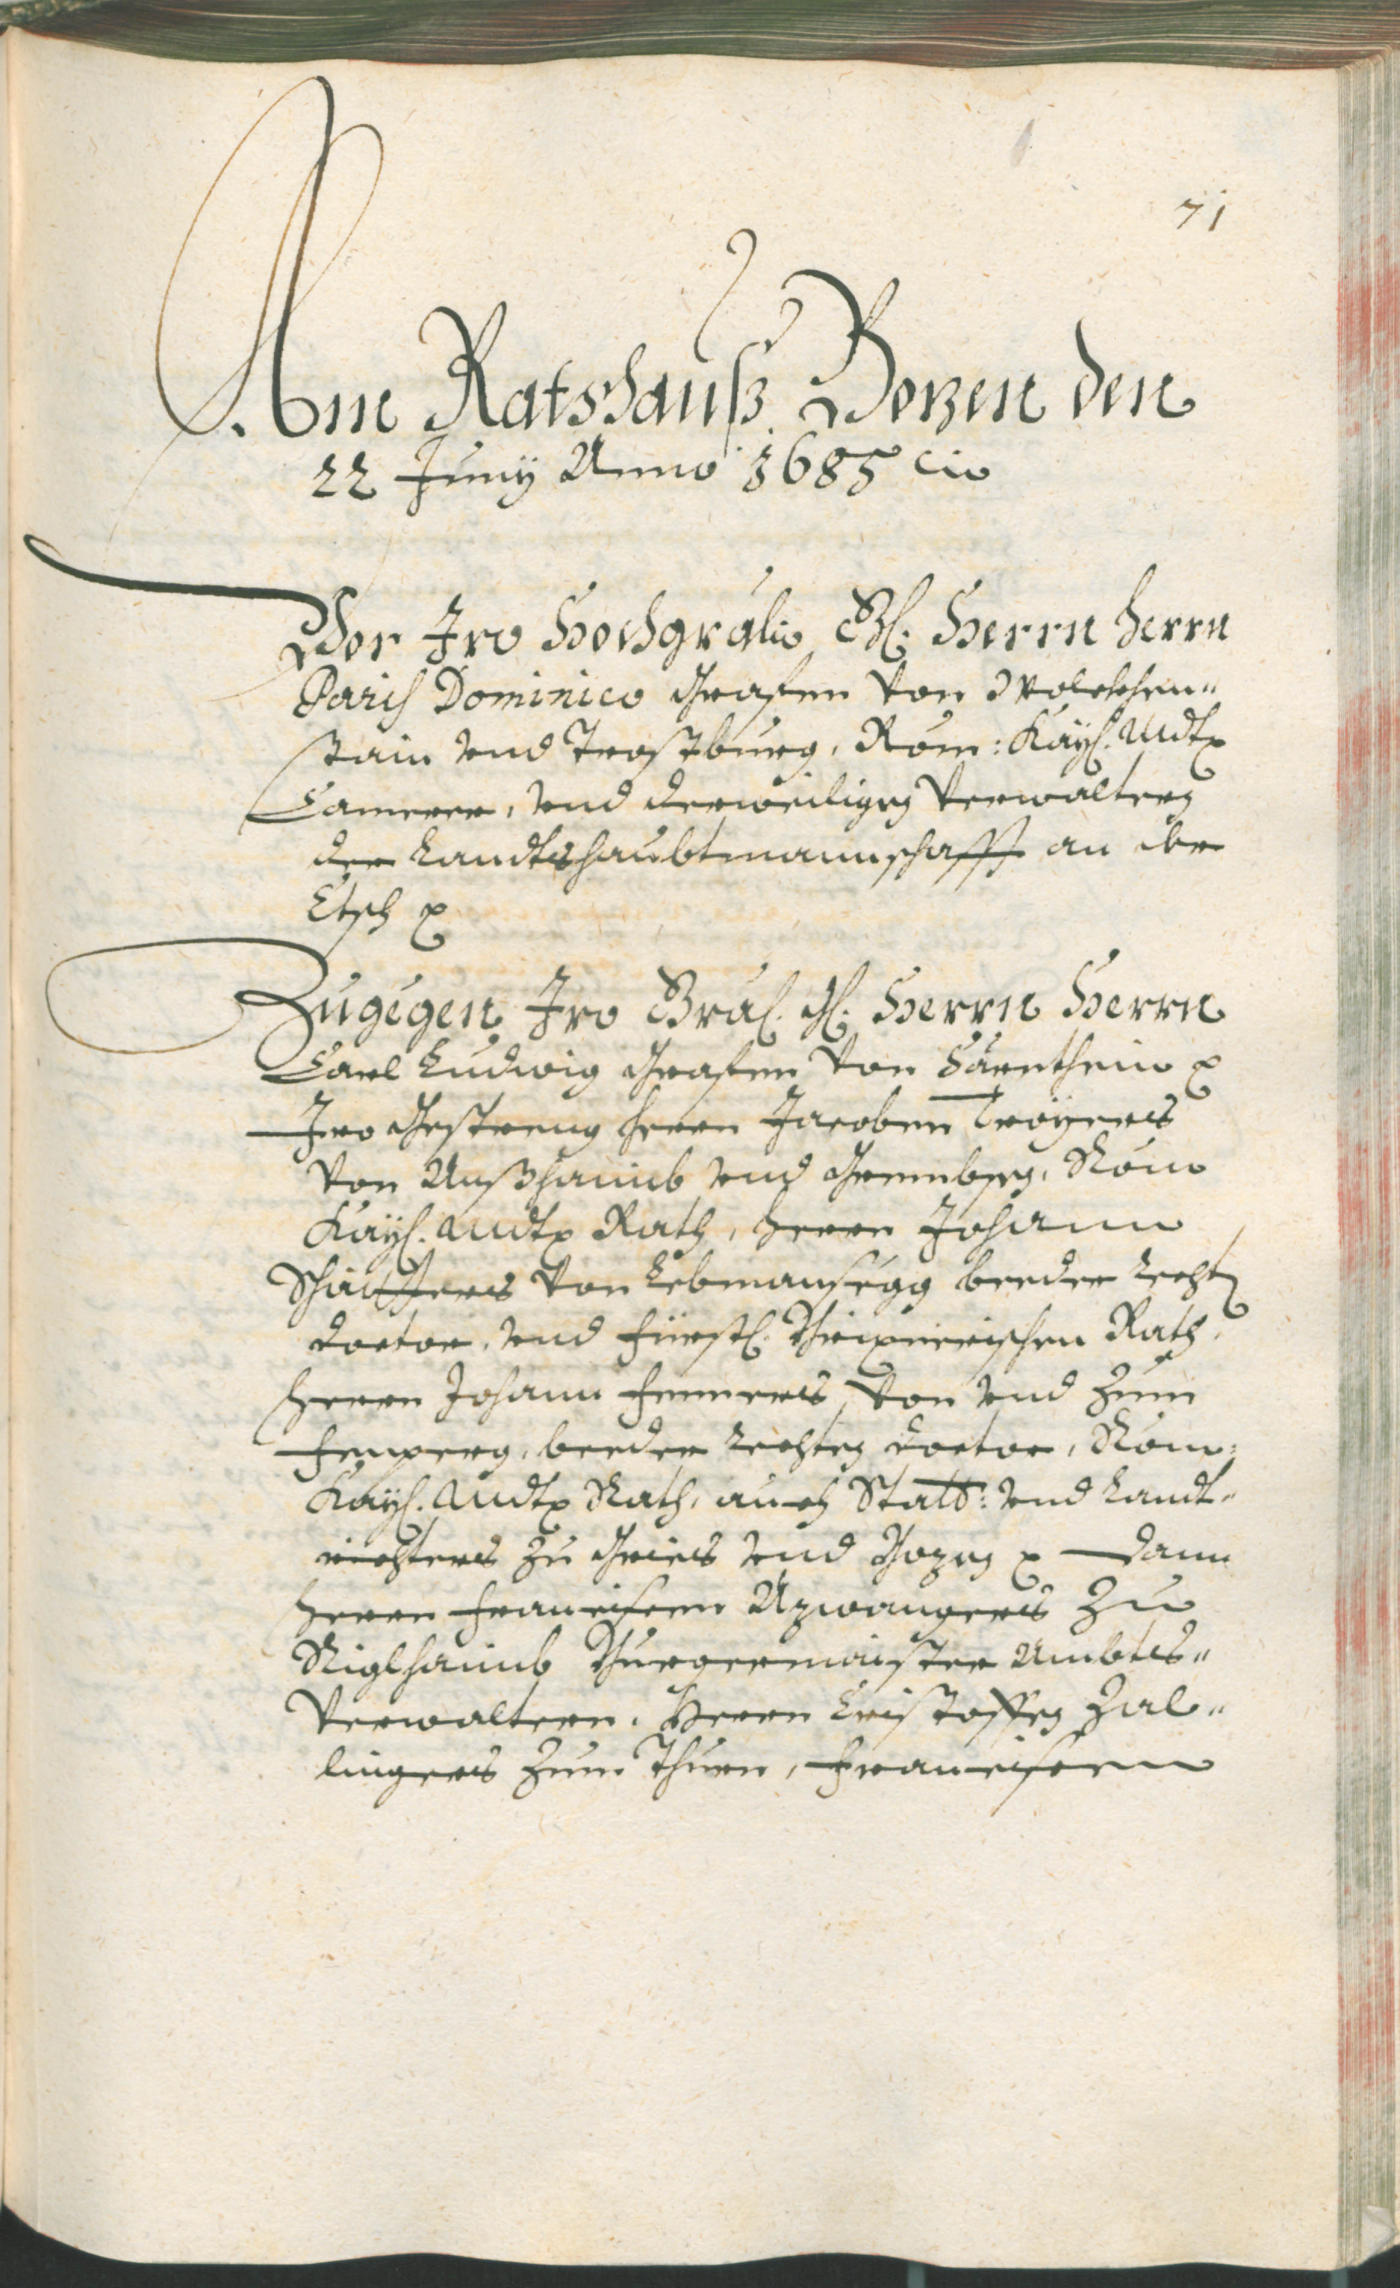 71
Am Ratshauß Bozen den
22 Juny Anno 1685
Vor Iro Hochgräfl. G. Herrn Herrn
Paris Dominico Grafen von Wolckhen"
stain vnd Trostburg, Röm: Kayß. Mdt.
Camerer, vnd derweiligen Verwaltern
der Landtshaubtmannschafft an der
Etsch
Zugegen Iro Gräfl. G. Herrn Herrn
Carl Ludwig Grafen von Särnthein
Iro Gestreng Herrn Jacoben Troyers
von Aufhaimb vnd Röm
Kayß. Mdt. Rath, Herrn Johann
von Lebmansegg beeder rechten
doctor, vnd fürstl. Brixnerischen Rath,
Herrn Johann Fenners von vnd zum
Fenperg, beeder rechten doctor, Röm:
Kayß. Mdt. Rath, auch Statt: vnd Landt"
richters zu Gries vnd Bozen Dann
Herrn Francisen Azwangers zu
Riglhaimb Burgermaister Ambts"
Verwaltern, Herrn Cristoffen Zal"
lingers zum Thurn, Francisen